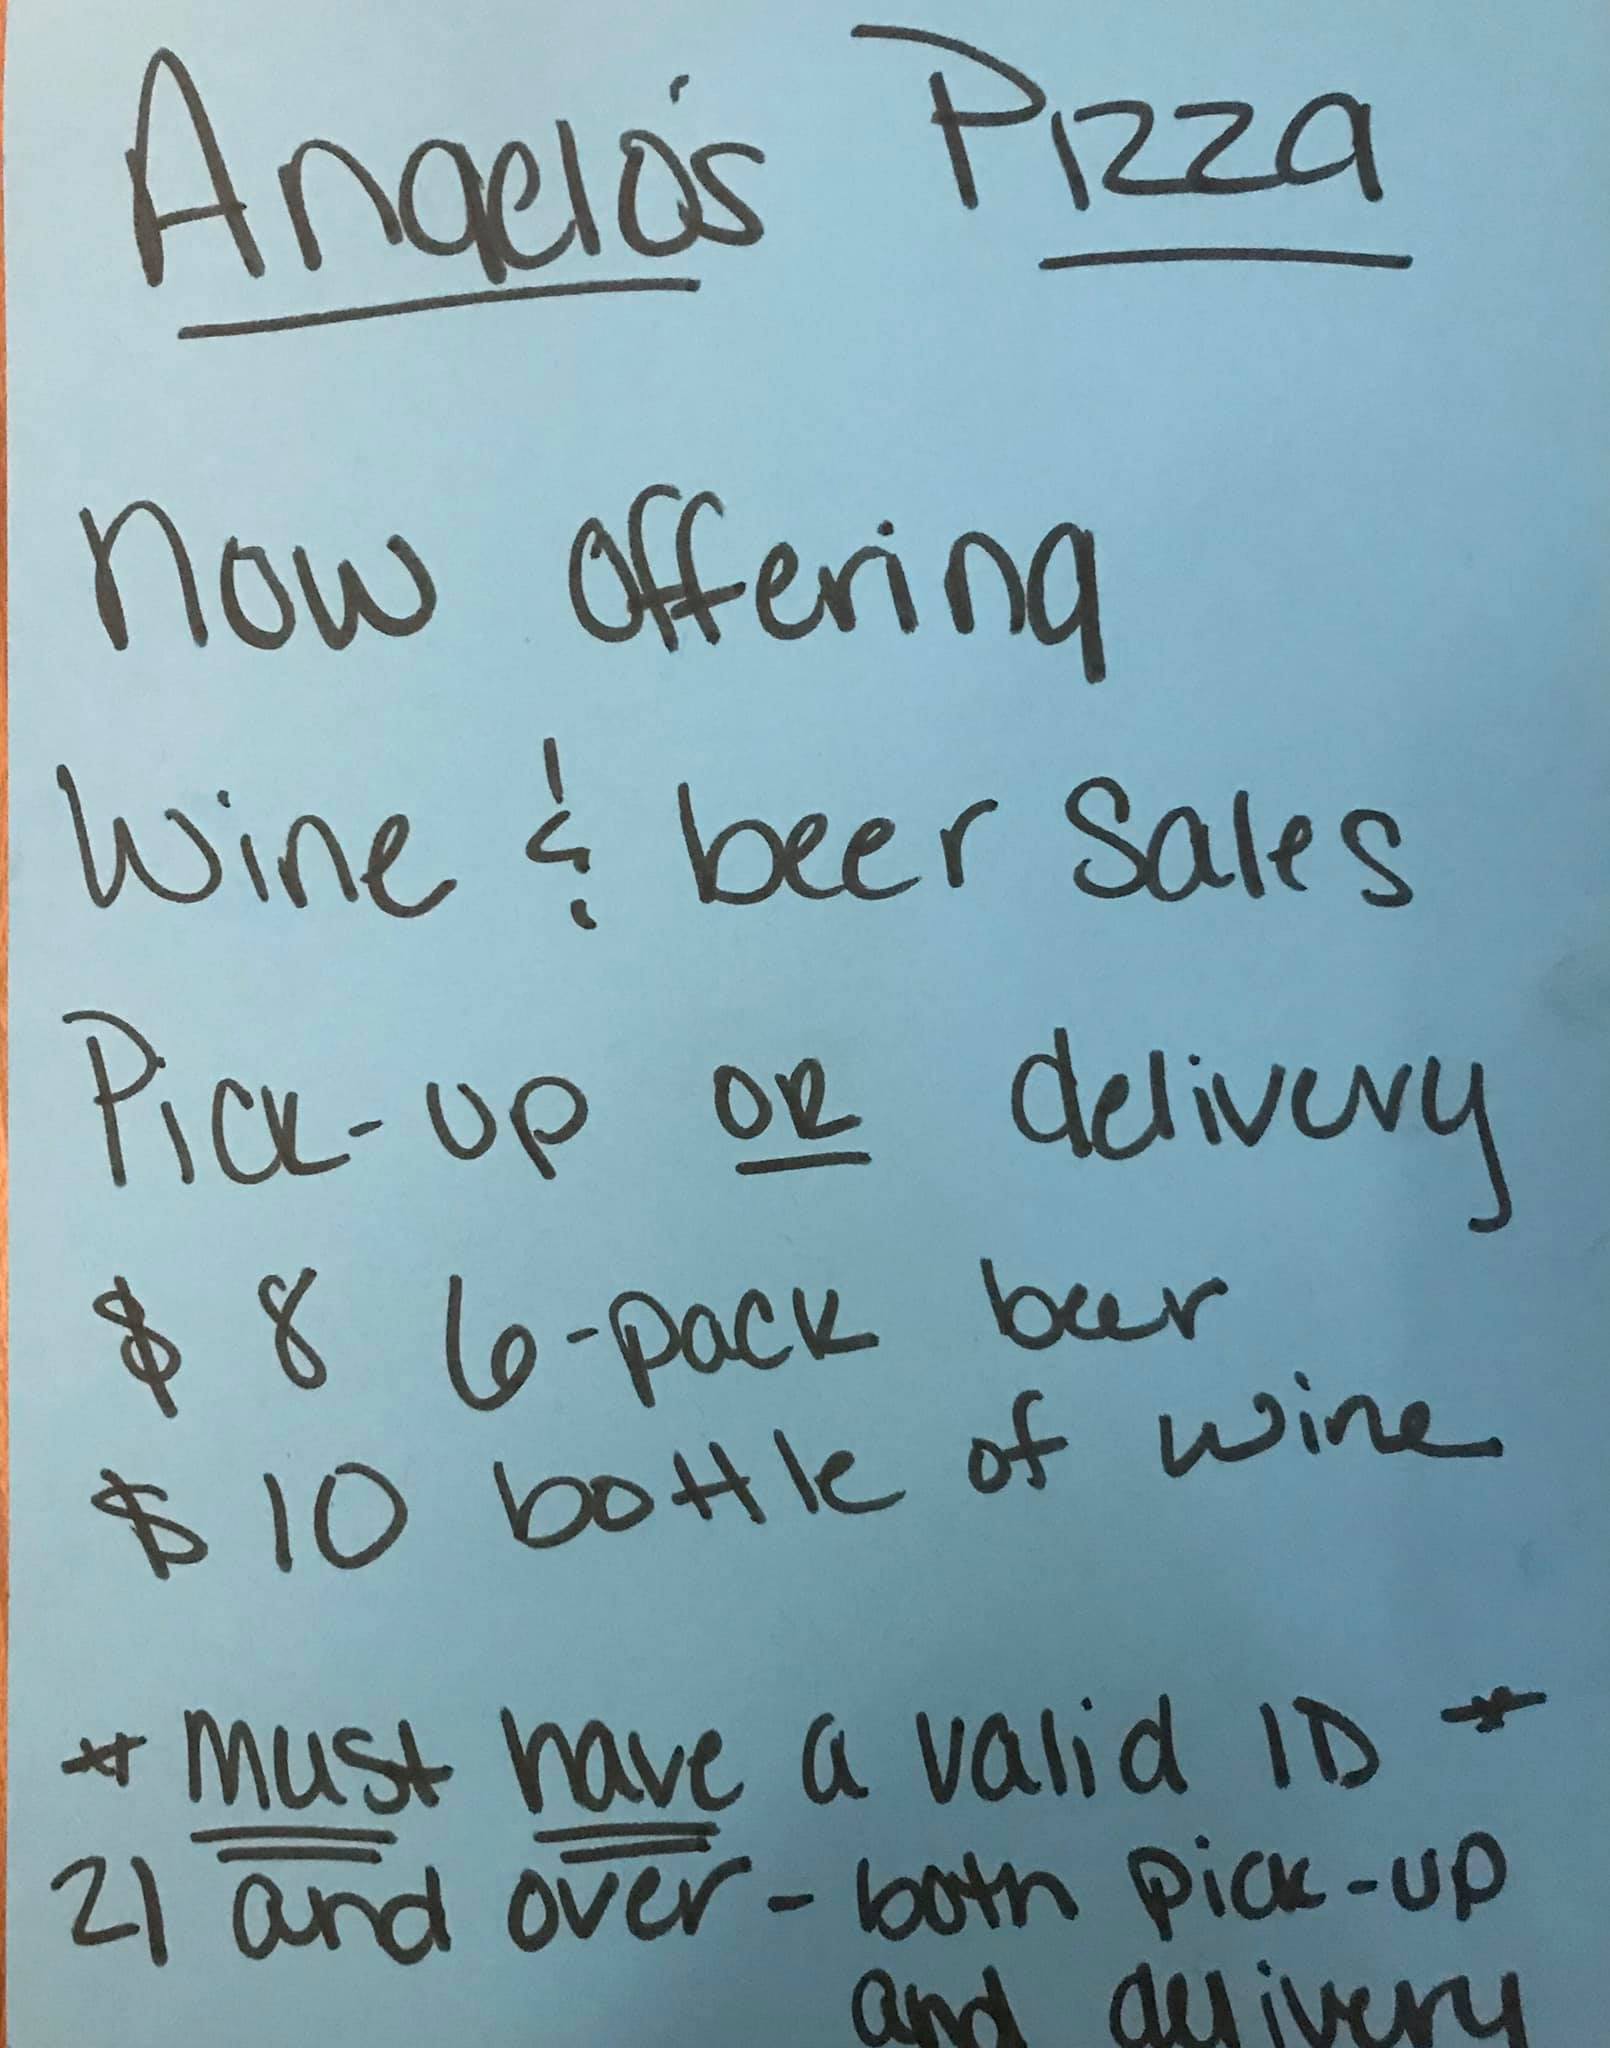 Angelo's Pizza
Now offering
Wine & beer Sales
Pick-up OR delivery
$ 8 6-pack beer
$ 10 bottle of wine
* Must have a valid ID *
21 and over - both pick-up
and delivery